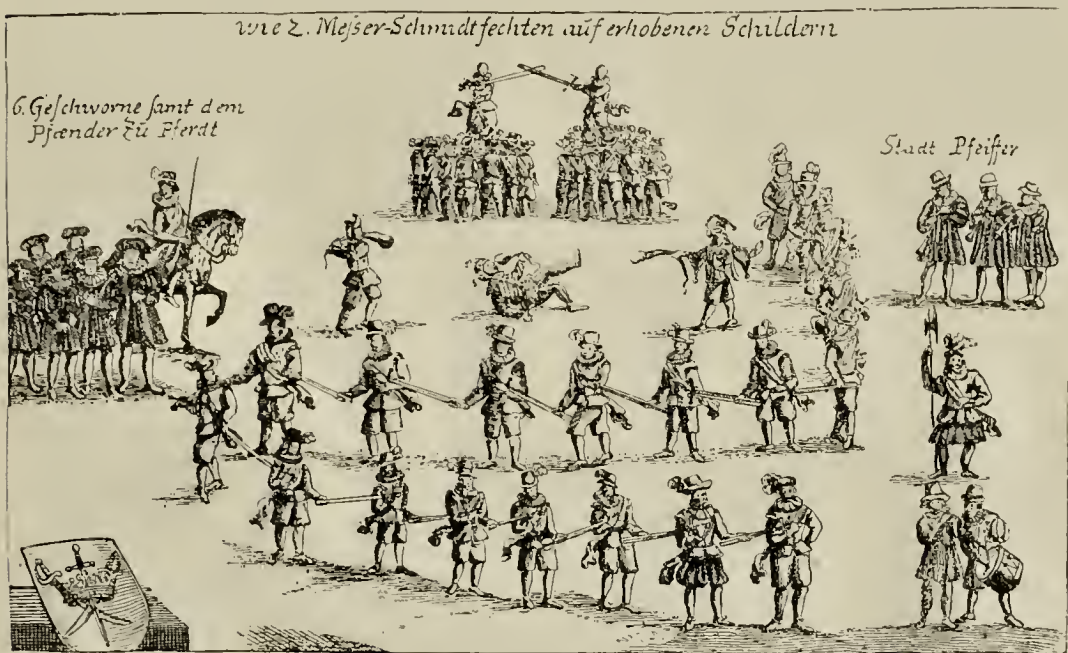 wie 2. Meſser-Schmidt fechten auf erhobenen Schildern
6. Geſchworne ſamt dem
Pfænder zu Pferdt
Stadt Pfeiffer